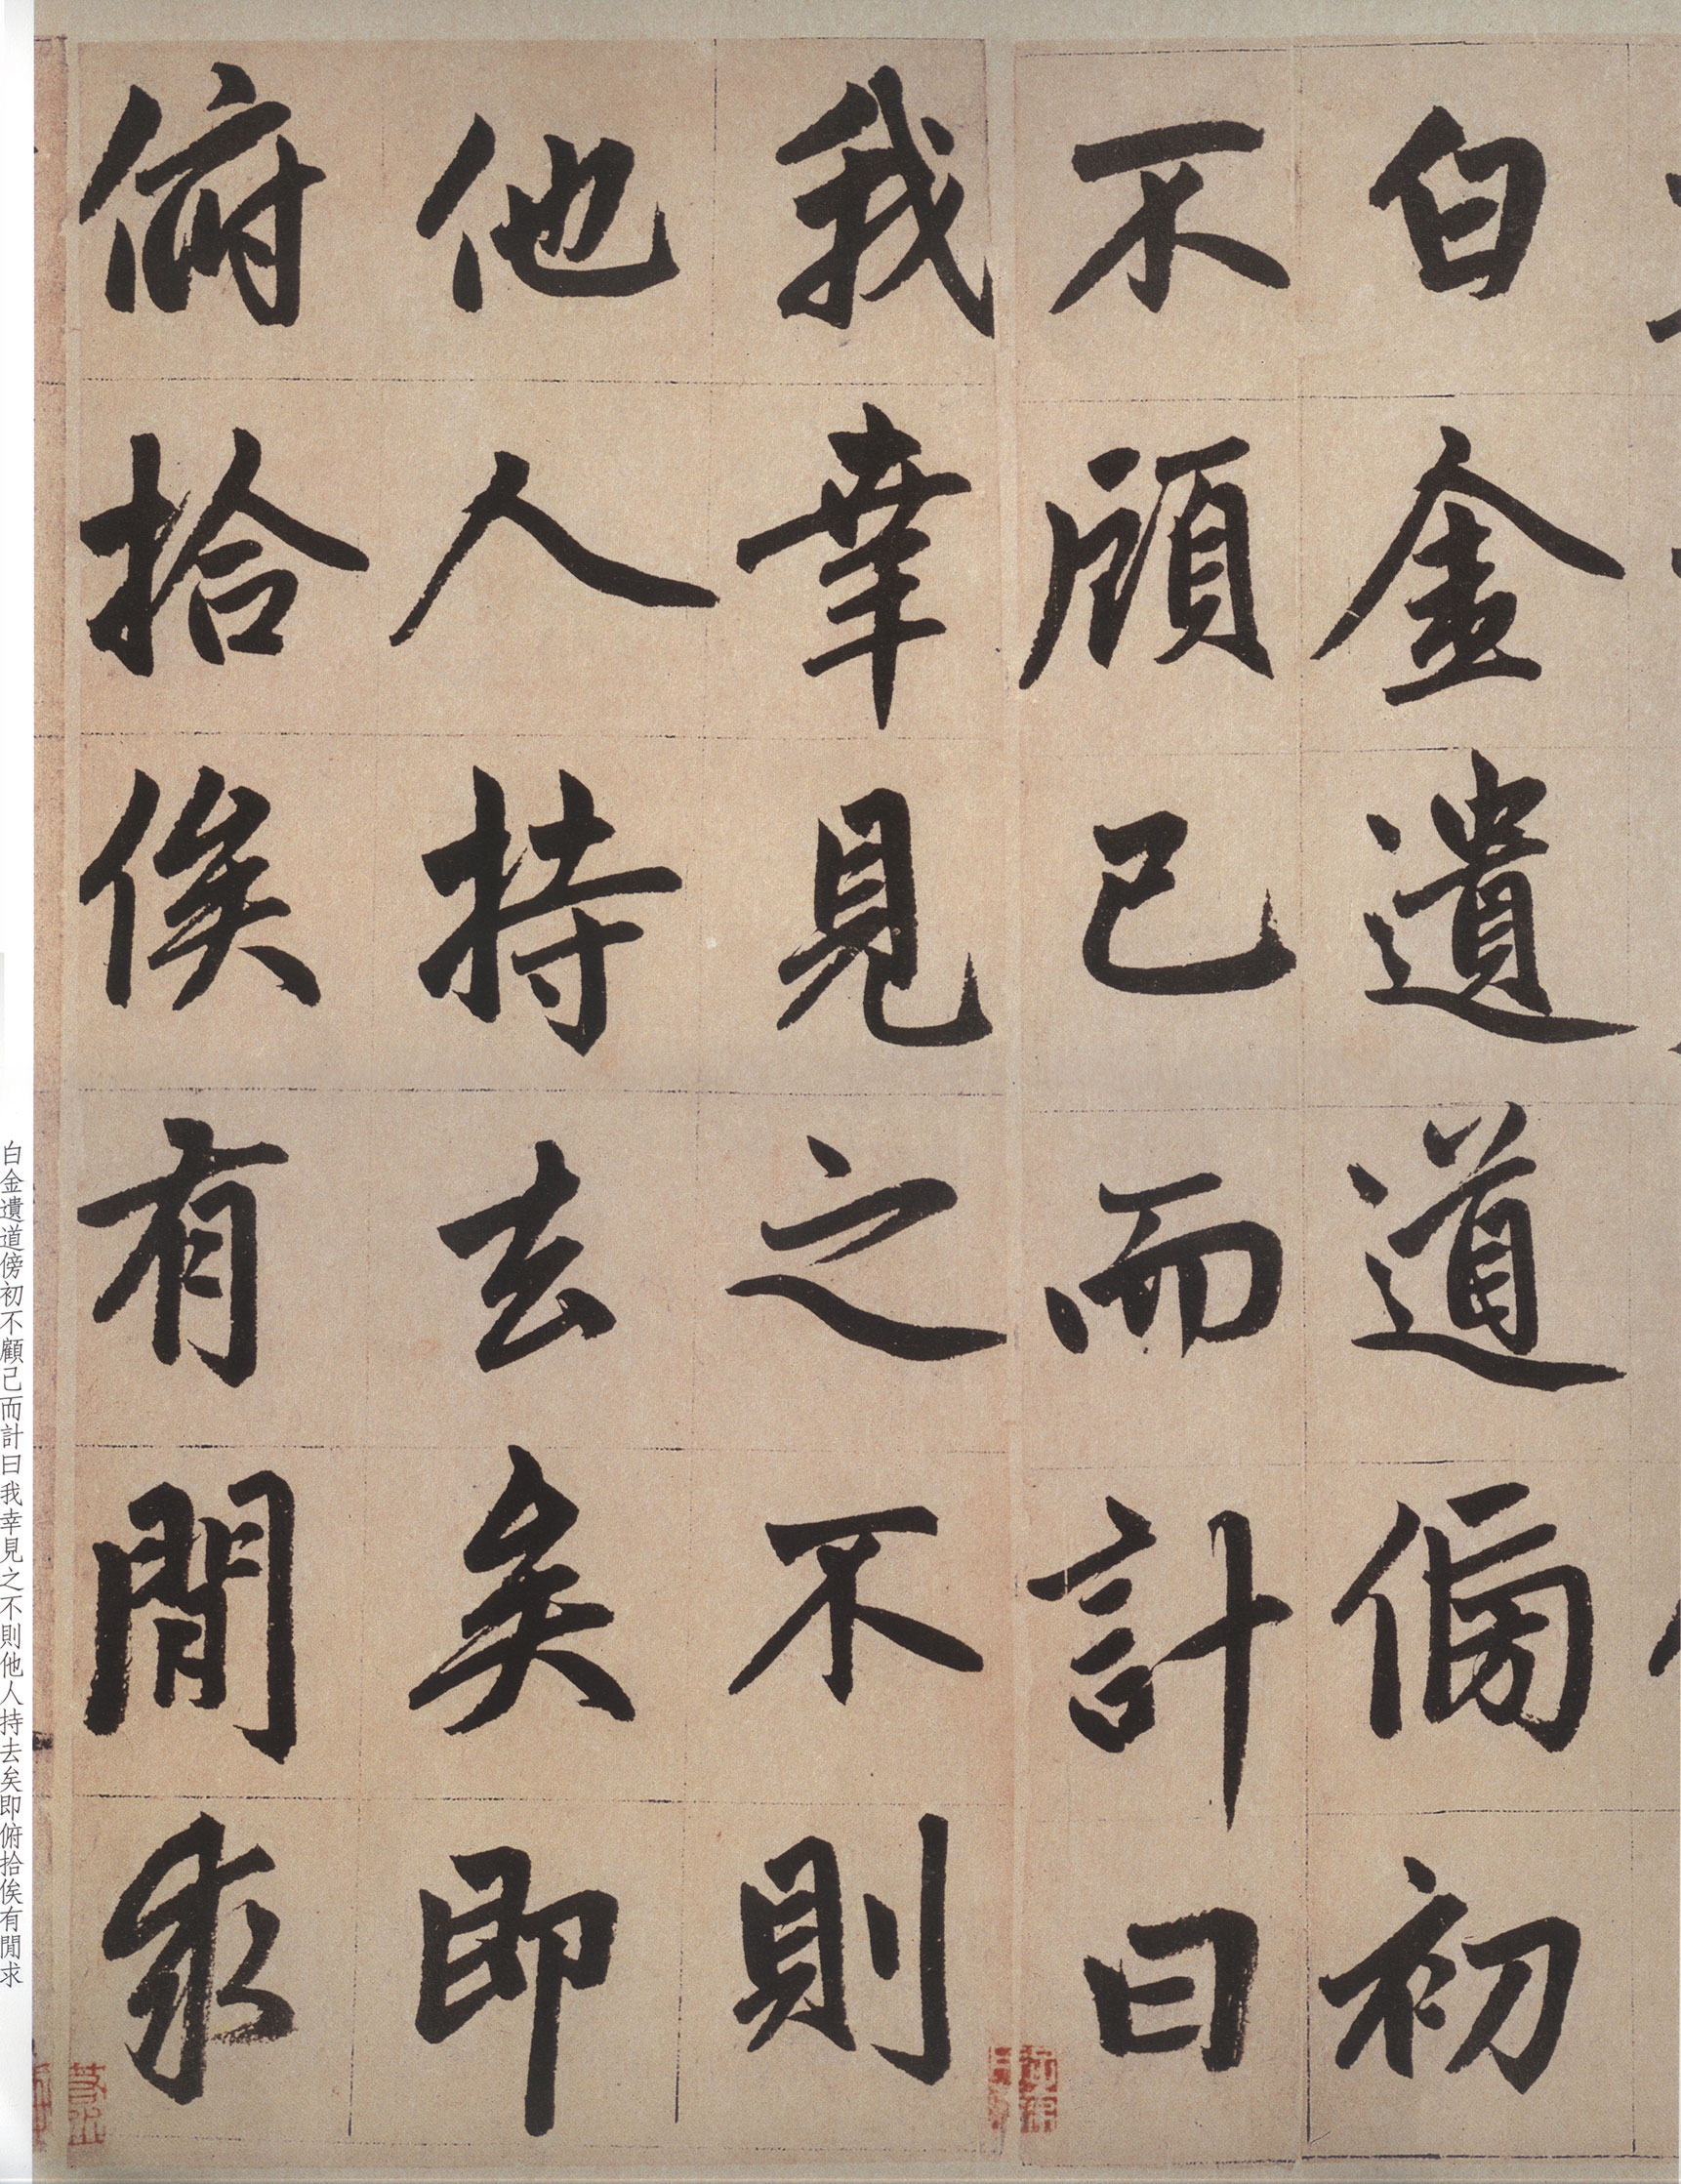 白金遺道傍初
不顧己而計曰
我幸見之不則
他人持去矣即
俯拾俟有閒求
白金遺道傍初不顧己而計曰我幸見之不則他人持去矣即俯拾俟有閒求